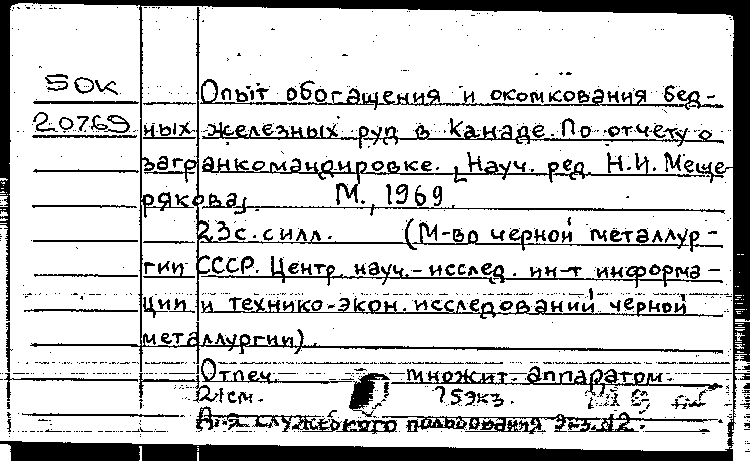 50к Опыт обогащения и окомкования бед-
20769 ных железных руд в Канаде. По отчету о
загранкомандировке. [Науч. ред. Н.И. Меще-
рякова]. М., 1969.
23с. с илл. (М-во черной металлур-
гии СССР. Центр. науч.-исслед. ин-т информа-
ции и технико-экон. исследований черной
металлургии).
Отпеч. множит. аппаратом.
21см. 75экз.
Для служебного пользования Экз. 12.